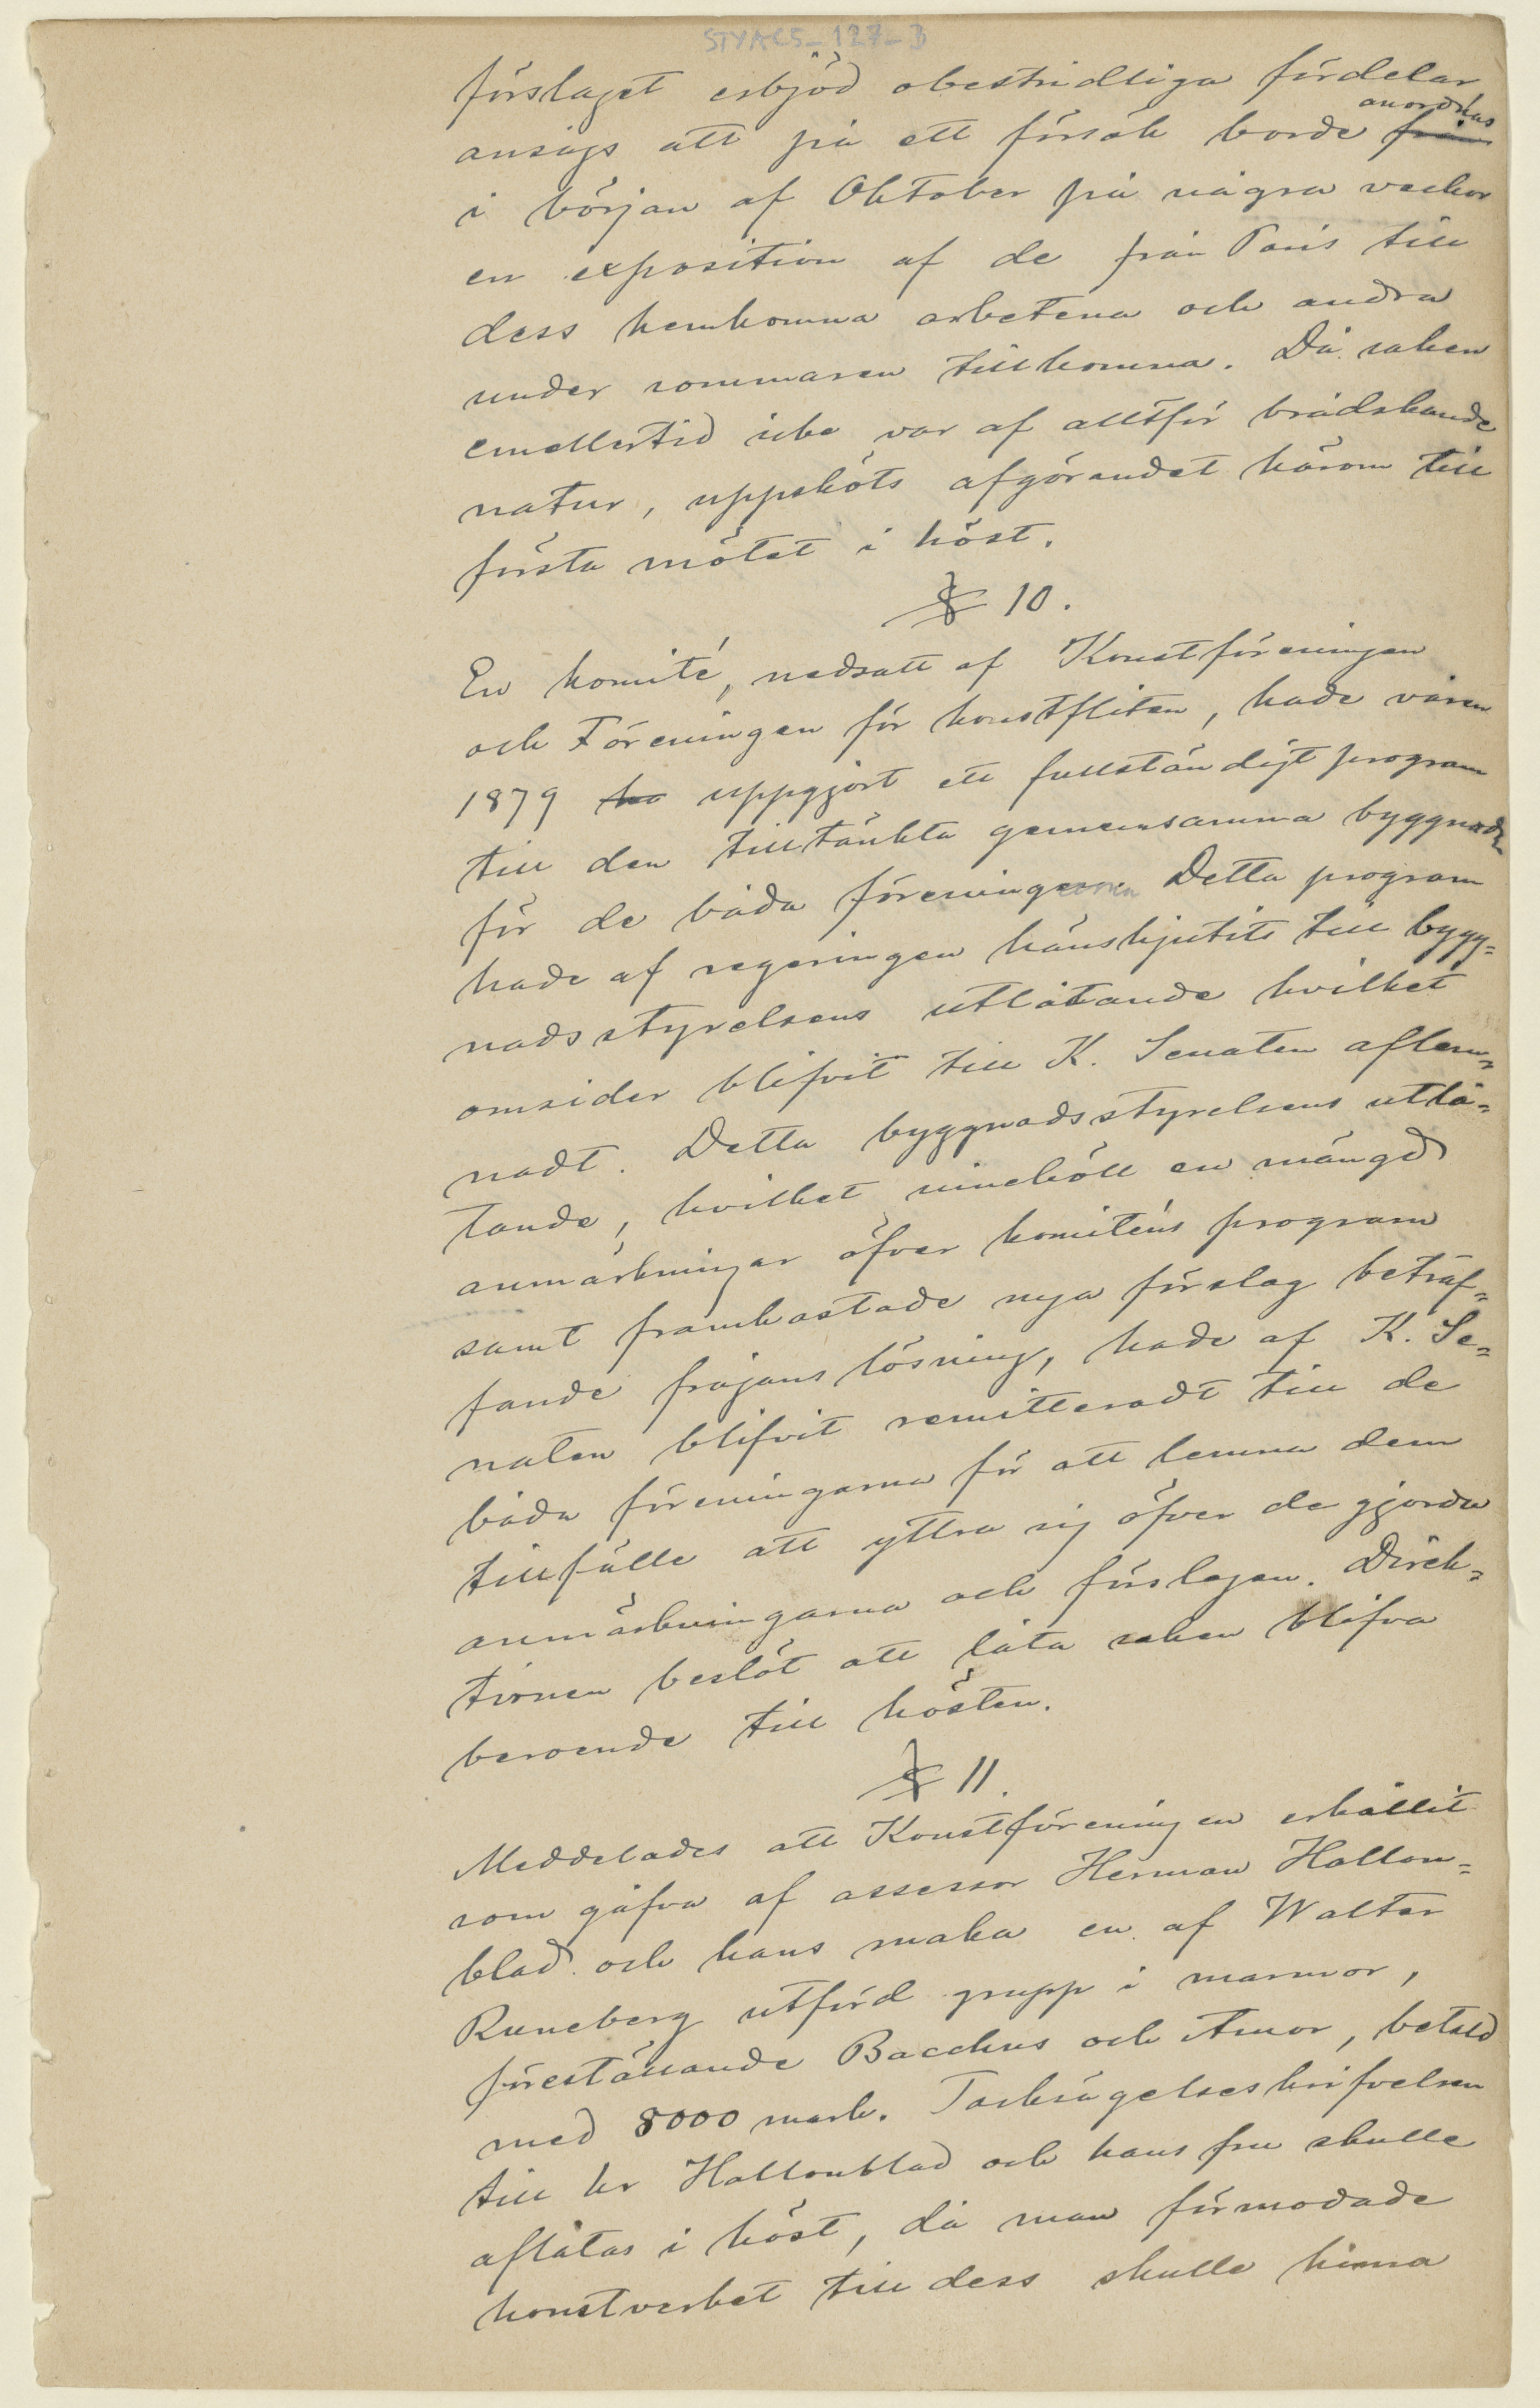 STYAC5_127_B
förslaget erbjöd obestridliga fördelar
ansågs att på ett försök borde från anordnas
i början af Oktober på några veckor
en exposition af de från Paris till
dess hemkomna arbetena och andra
under sommaren tillkomna. Då saken
emellertid icke var af alltför brådskande
natur, uppsköts afgörandet härom till
första mötet i höst.
§ 10.
En komité, nedsatt af Konstföreningen
och Föreningen för konstfliten, hade våren
1879 ha uppgjort ett fullständigt program
till den tilltänkta gemensamma byggnaden
för de båda föreningarna Detta program
hade af regeringen hänskjutits till bygg=
nadsstyrelsens utlåtande hvilket
omsider blifvit till K. Senaten aflem=
nadt. Detta byggnadsstyrelsens utlå=
tande, hvilket innehöll en mängd
anmärkningar öfver komiténs program
samt framkastade nya förslag beträf=
fande frågans lösning, hade af K. Se=
naten blifvit remitteradt till de
båda föreningarna för att lemna dem
tillfälle att yttra sig öfver de gjorda
anmärkningarna och förslagen. Direk=
tionen beslöt att låta saken blifva
beroende till hösten.
§ 11.
Meddelades att Konstföreningen erhållit
som gåfva af assessor Herman Hallon=
blad och hans maka en af Walter
Runeberg utförd grupp i marmor,
föreställande Bacchus och Amor, betald
med 8000 mark. Tacksägelseskrifvelsen
till hr Hallonblad och hans fru skulle
aflåtas i höst, då man förmodade
konstverket till dess skulle hinna